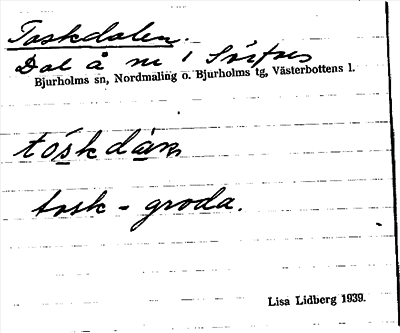 Toskdalen.
Dal å nr 1 Sörfors
Bjurholms sn, Nordmaling o. Bjurholms tg, Västerbottens l.
tosk - groda.
Lisa Lidberg 1939.